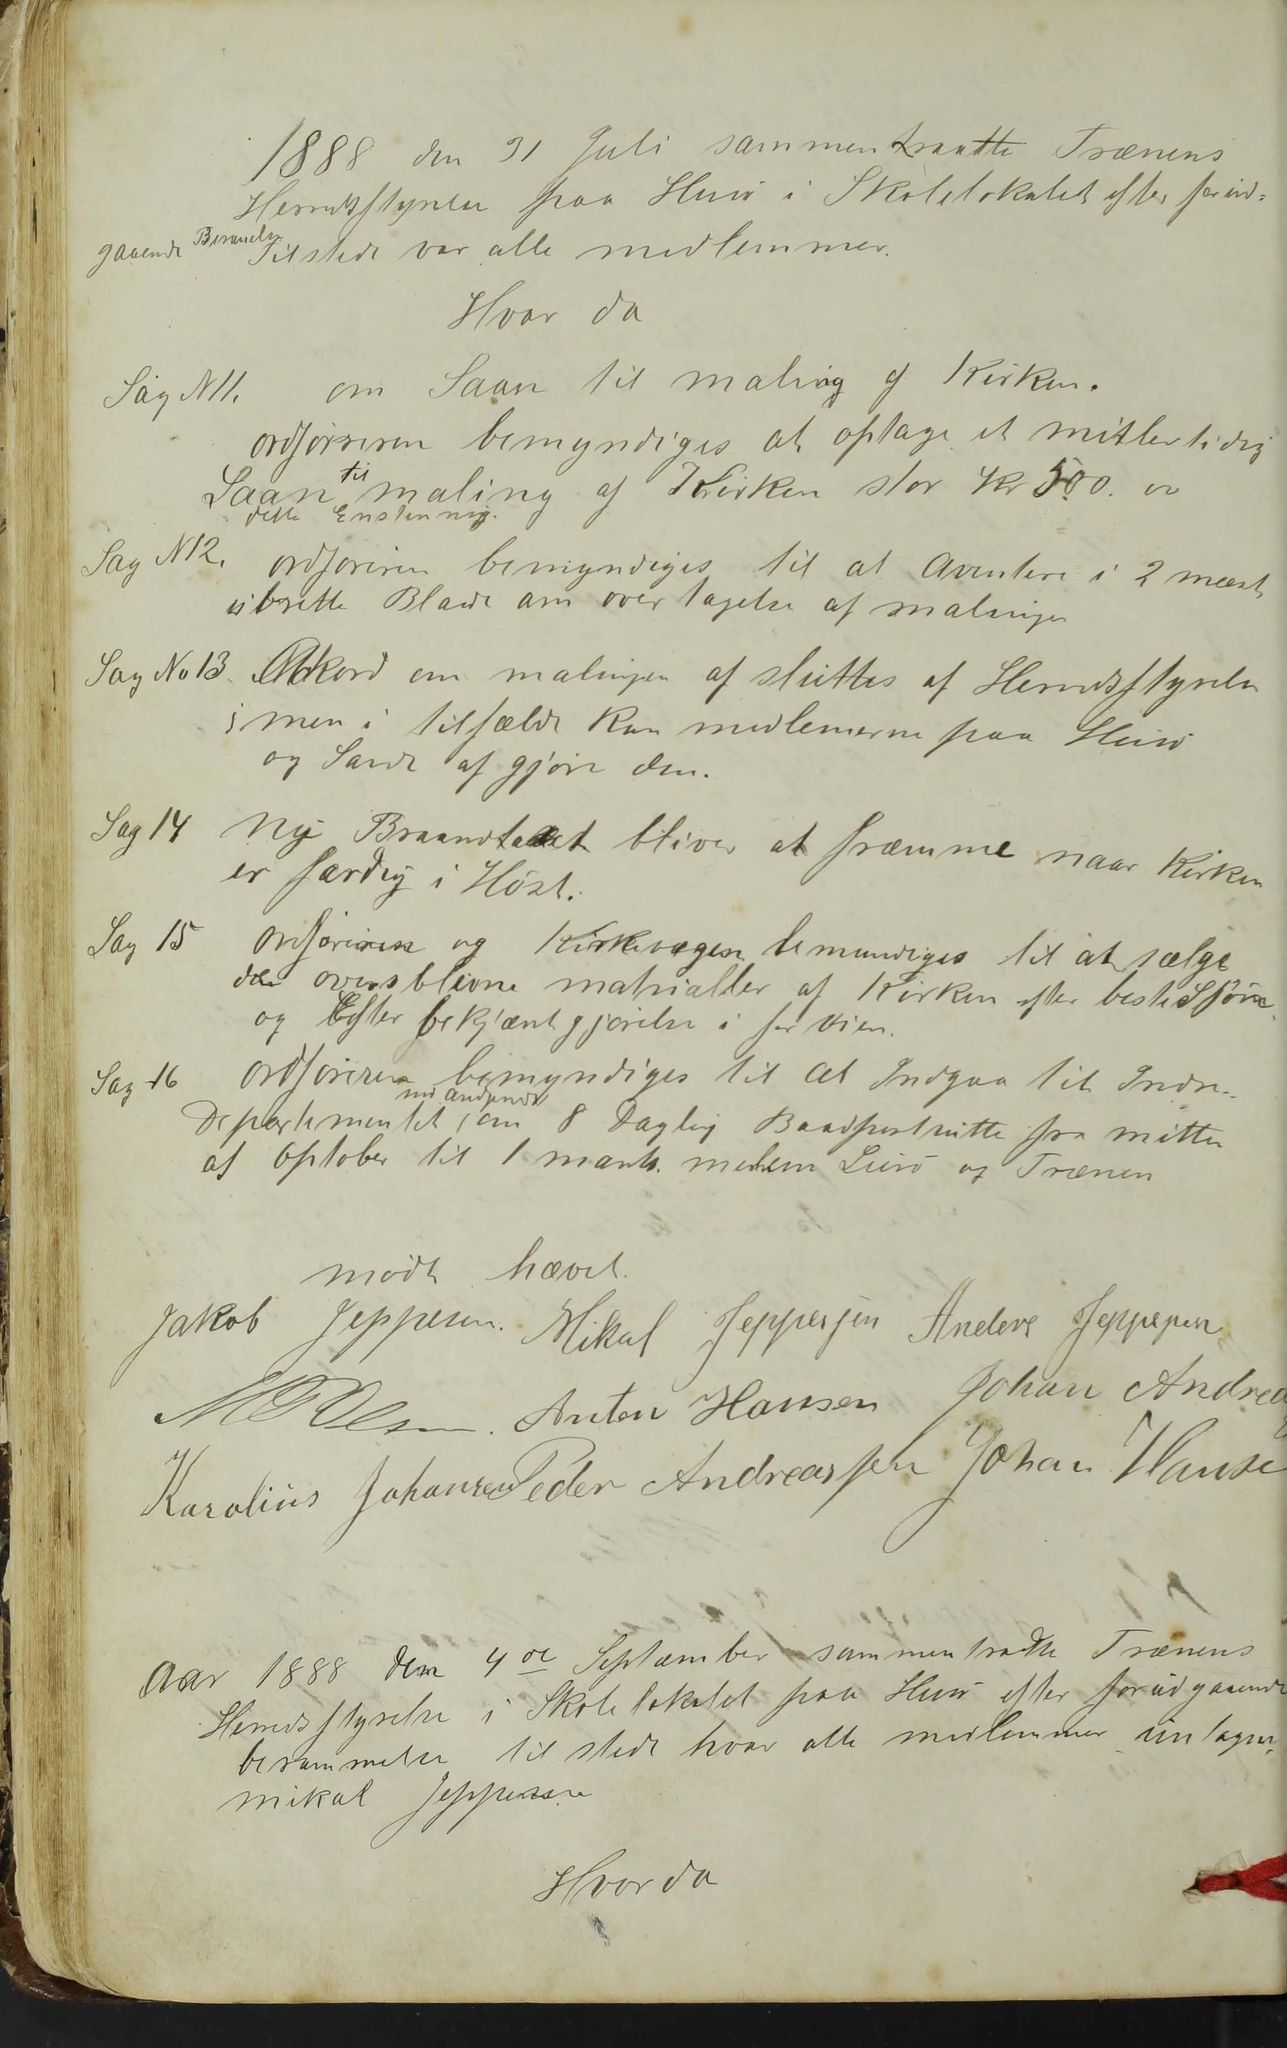 1888 den 31 Juli sammentraatte Trænens
Herredsstyrelse paa Husö i Skolelokalet efter forud-
gaaende Berammelse Tilstede var alle medlemmer.
Hvor da
Sag N 11. om Laan til maling af Kirken.
ordføreren bemyndiges at optage et mitlertidig
Laan til maling af Kirken stor Kr 500. er
dette Enstemmig.
Sag N 12. ordføreren bemyndiges til at Avertere i 2 mæst
utbrette Blade om overtagelse af malingen
Sag No 13. Akkord om malingen af sluttes af Herredsstyrelsen
men i tilfælde kan medlemerne paa Husö
og Sande af gjøre den.
Sag 14 Ny Braandtaxt bliver at fræmme naar Kirken
er færdig i Høst.
Sag 15 ordføreren og Kirkevægen bemundiges til at sælge
de overblevne matrialler af Kirken efter beste Skjøn
og Efter bekjæntgjørelse i forveien.
Sag 16 ordføreren bemyndiges til at Indgaa til Indre-
Departementet med andragende om 8 Daglig Baadpostrutte fra mitten
af Oktober til 1 marts. mellem Lurö og Trænen
møde hævet.
Jakob Jeppesen. Mikal Jeppesen Anders Jeppesen
Anton Hansen Johan Andrea
Karolius Johansen Peder Andreassen Johan Hanse
Aar 1888 den 4de Septæmber sammentradte Trænens
Herredsstyrelse i Skolelokalet paa Husö efter forudgaaende
berammelse til stede hvor alle medlemmer untagen
mikal Jeppesen
Hvor da